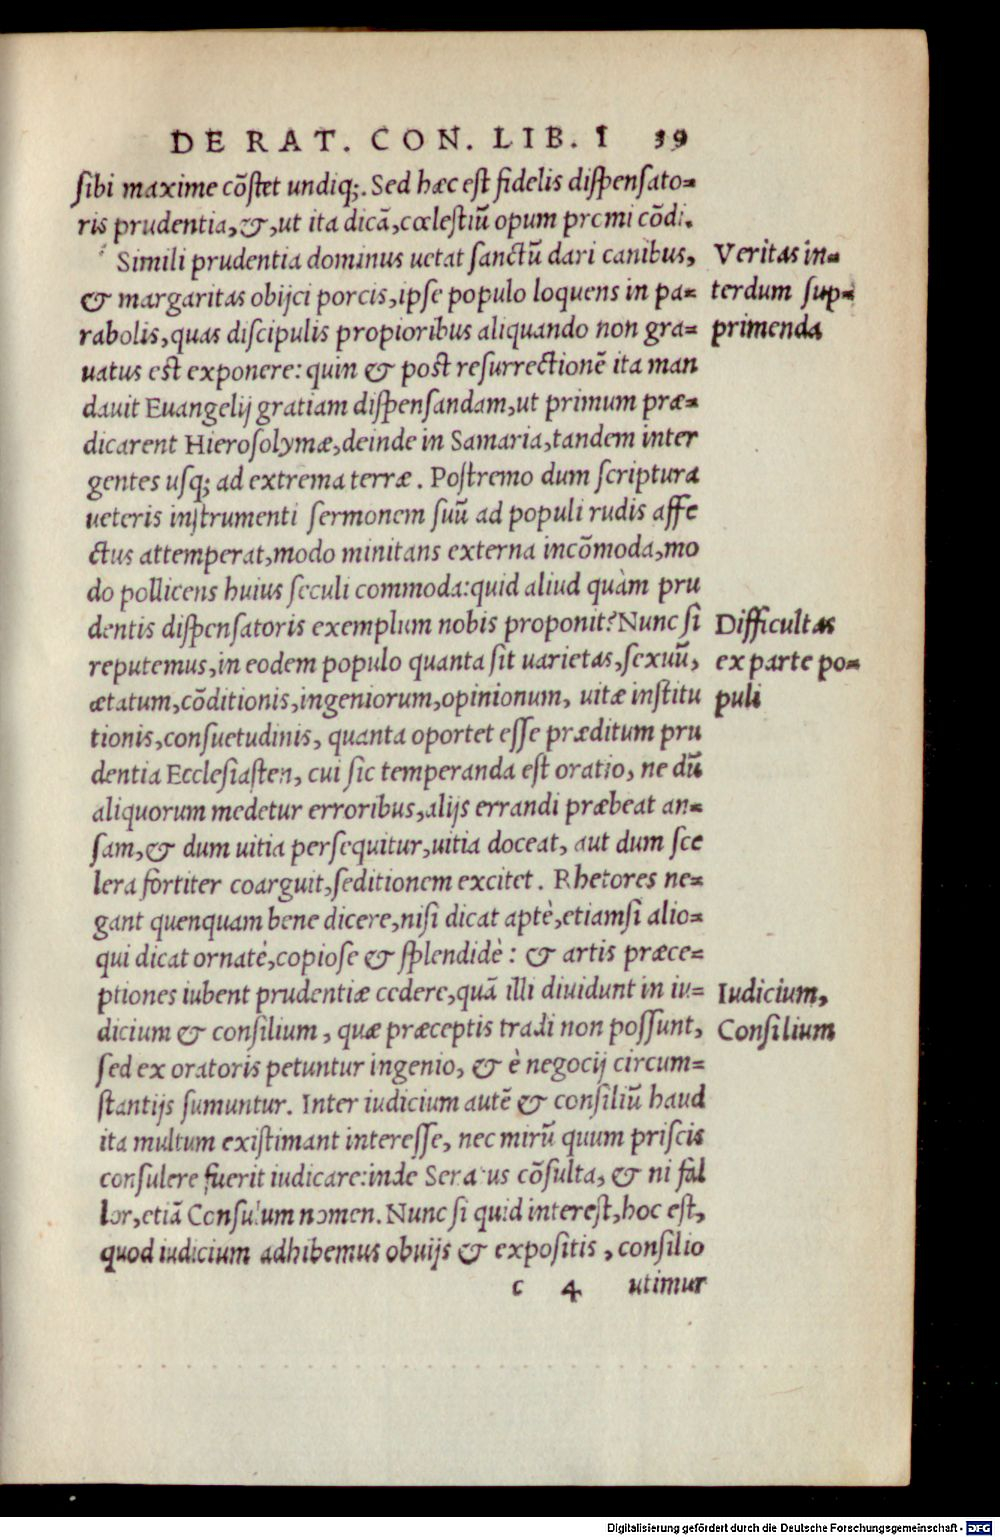 DE RAT. CON. LIB. I 39
sibi maxime cõstet undiq;. Sed hæc est fidelis dispensato=
ris prudentia, &, ut ita dicã, cœlestiũ opum promi cõdi.
Simili prudentia dominus uetat sanctũ dari canibus,
Veritas in=
& margaritas obijci porcis, ipse populo loquens in pa=
terdum sup=
rabolis, quas discipulis propioribus aliquando non gra=
primenda
uatus est exponere: quin & post resurrectionẽ ita man
dauit Euangelij gratiam dispensandam, ut primum præ=
dicarent Hierosolymæ, deinde in Samaria, tandem inter
gentes usq; ad extrema terræ. Postremo dum scriptura
ueteris instrumenti sermonem suũ ad populi rudis affe
ctus attemperat, modo minitans externa incõmoda, mo
do pollicens huius seculi commoda: quid aliud quàm pru
dentis dispensatoris exemplum nobis proponit? Nunc si
Difficultas
reputemus, in eodem populo quanta sit uarietas, sexuũ,
ex parte po=
ætatum, cõditionis, ingeniorum, opinionum, uitæ institu
puli
tionis, consuetudinis, quanta oportet esse præditum pru
dentia Ecclesiasten, cui sic temperanda est oratio, ne dũ
aliquorum medetur erroribus, alijs errandi præbeat an=
sam, & dum uitia persequitur, uitia doceat, aut dum sce
lera fortiter coarguit, seditionem excitet. Rhetores ne=
gant quenquam bene dicere, nisi dicat aptè, etiamsi alio=
qui dicat ornatè, copiose & splendidè: & artis præce=
ptiones iubent prudentiæ cedere, quã illi diuidunt in iu=
Iudicium,
dicium & consilium, quæ præceptis tradi non possunt,
Consilium
sed ex oratoris petuntur ingenio, & è negocij circum=
stantijs sumuntur. Inter iudicium autẽ & consiliũ haud
ita multum existimant interesse, nec mirũ quum priscis
consulere fuerit iudicare: inde Senatus cõsulta, & ni fal
lor, etiã Consulum nomen. Nunc si quid interest, hoc est,
quod iudicium adhibemus obuijs & expositis, consilio
c 4 utimur
Digitalisierung gefördert durch die Deutsche Forschungsgemeinschaft - DFG